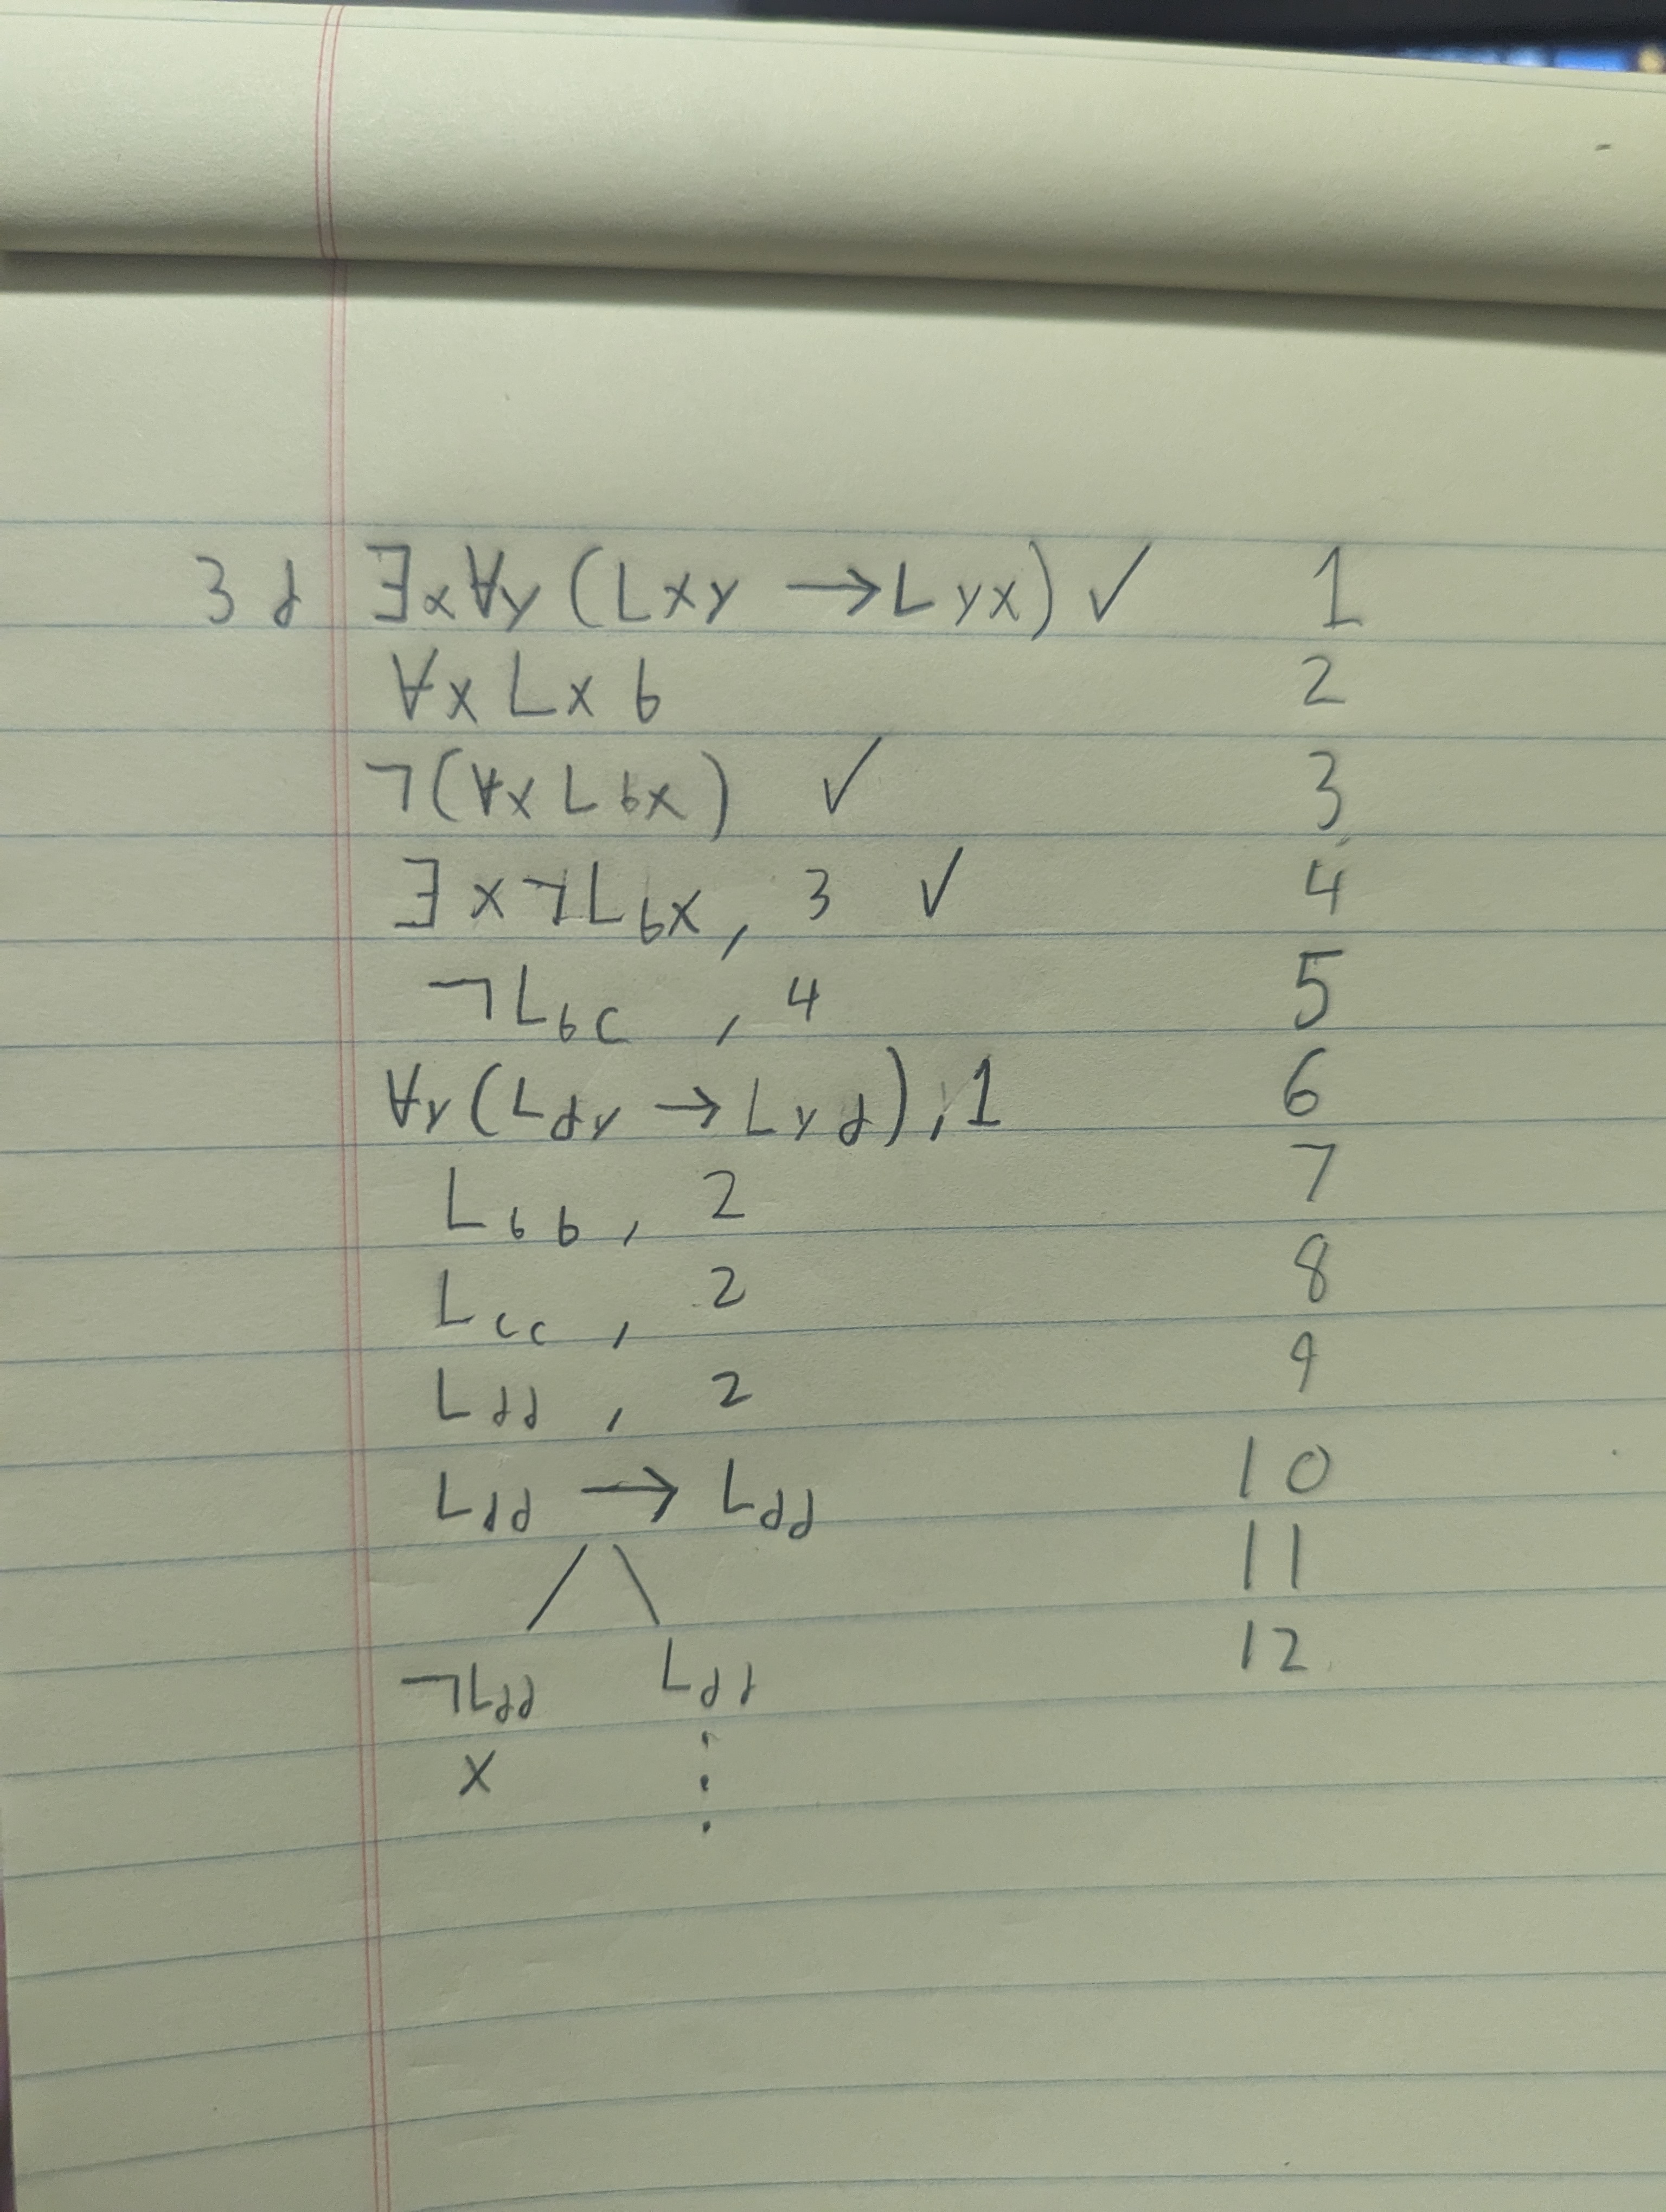 3d ∃x∀y(Lxy → Lyx) ✓ 1
∀xLxb 2
¬(∀xLbx) ✓ 3
∃x¬Lbx, 3 ✓ 4
¬Lbc, 4 5
∀y(Ldy → Lyd), 1 6
Lbb, 2 7
Lcc, 2 8
Ldd, 2 9
Ldd → Ldd 10
/ \ 11
¬Ldd Ldd 12
x ⋮